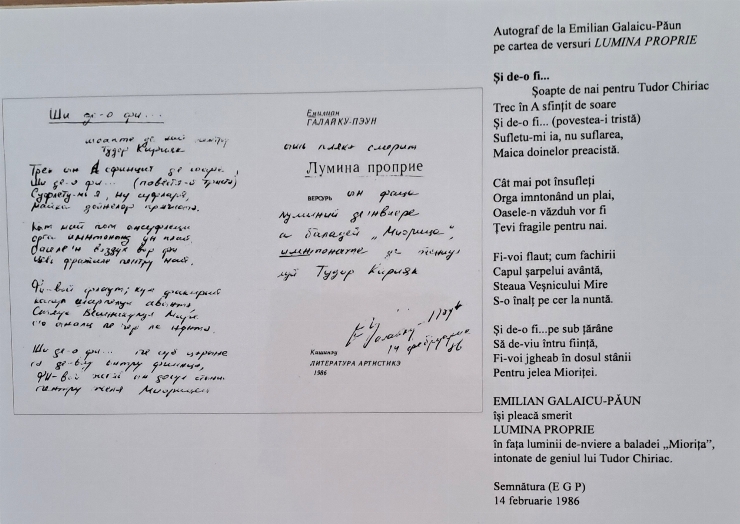 Ши де-о фи...
Тудор Кирияк
Трек ын Асфинцит де соаре,
Ши де-о фи... (повестя-й тристэ)
Суфлету-мь я, ну суфларя,
Майка дойнелор
Кыт май пот
Орга ун плай,
вор фи
фражиле пентру най.
Фи-вой флаут; кум факирий
Капул шарпелуй авынтэ,
Стяуа Вешникулуй Мире
Ши де-о фи...
ынтру фиинцэ,
Фи-вой
Пентру желя Миорицей
Емилиан
ГАЛАЙКУ-ПЭУН
ышь плякэ смерит
Лумина проприе
ВЕРСУРЬ ын фаца
луминий де-нвиере
а баладей „Миорица",
де
луй Тудор Кирияк
14 фебруарие
86
Кишинэу
ЛИТЕРАТУРА АРТИСТИКЭ
1986
Autograf de la Emilian Galaicu-Păun
pe cartea de versuri LUMINA PROPRIE
Și de-o fi...
Șoapte de nai pentru Tudor Chiriac
Trec în A sfințit de soare
Și de-o fi... (povestea-i tristă)
Sufletu-mi ia, nu suflarea,
Maica doinelor preacistă.
Cât mai pot însufleți
Orga imntonând un plai,
Oasele-n văzduh vor fi
Țevi fragile pentru nai.
Fi-voi flaut; cum fachirii
Capul șarpelui avântă,
Steaua Veșnicului Mire
S-o înalț pe cer la nuntă.
Și de-o fi...pe sub țărâne
Să de-viu întru ființă,
Fi-voi jgheab în dosul stânii
Pentru jelea Mioriței.
EMILIAN GALAICU-PĂUN
își pleacă smerit
LUMINA PROPRIE
în fața luminii de-nviere a baladei „Miorița",
intonate de geniul lui Tudor Chiriac.
Semnătura (E G P)
14 februarie 1986